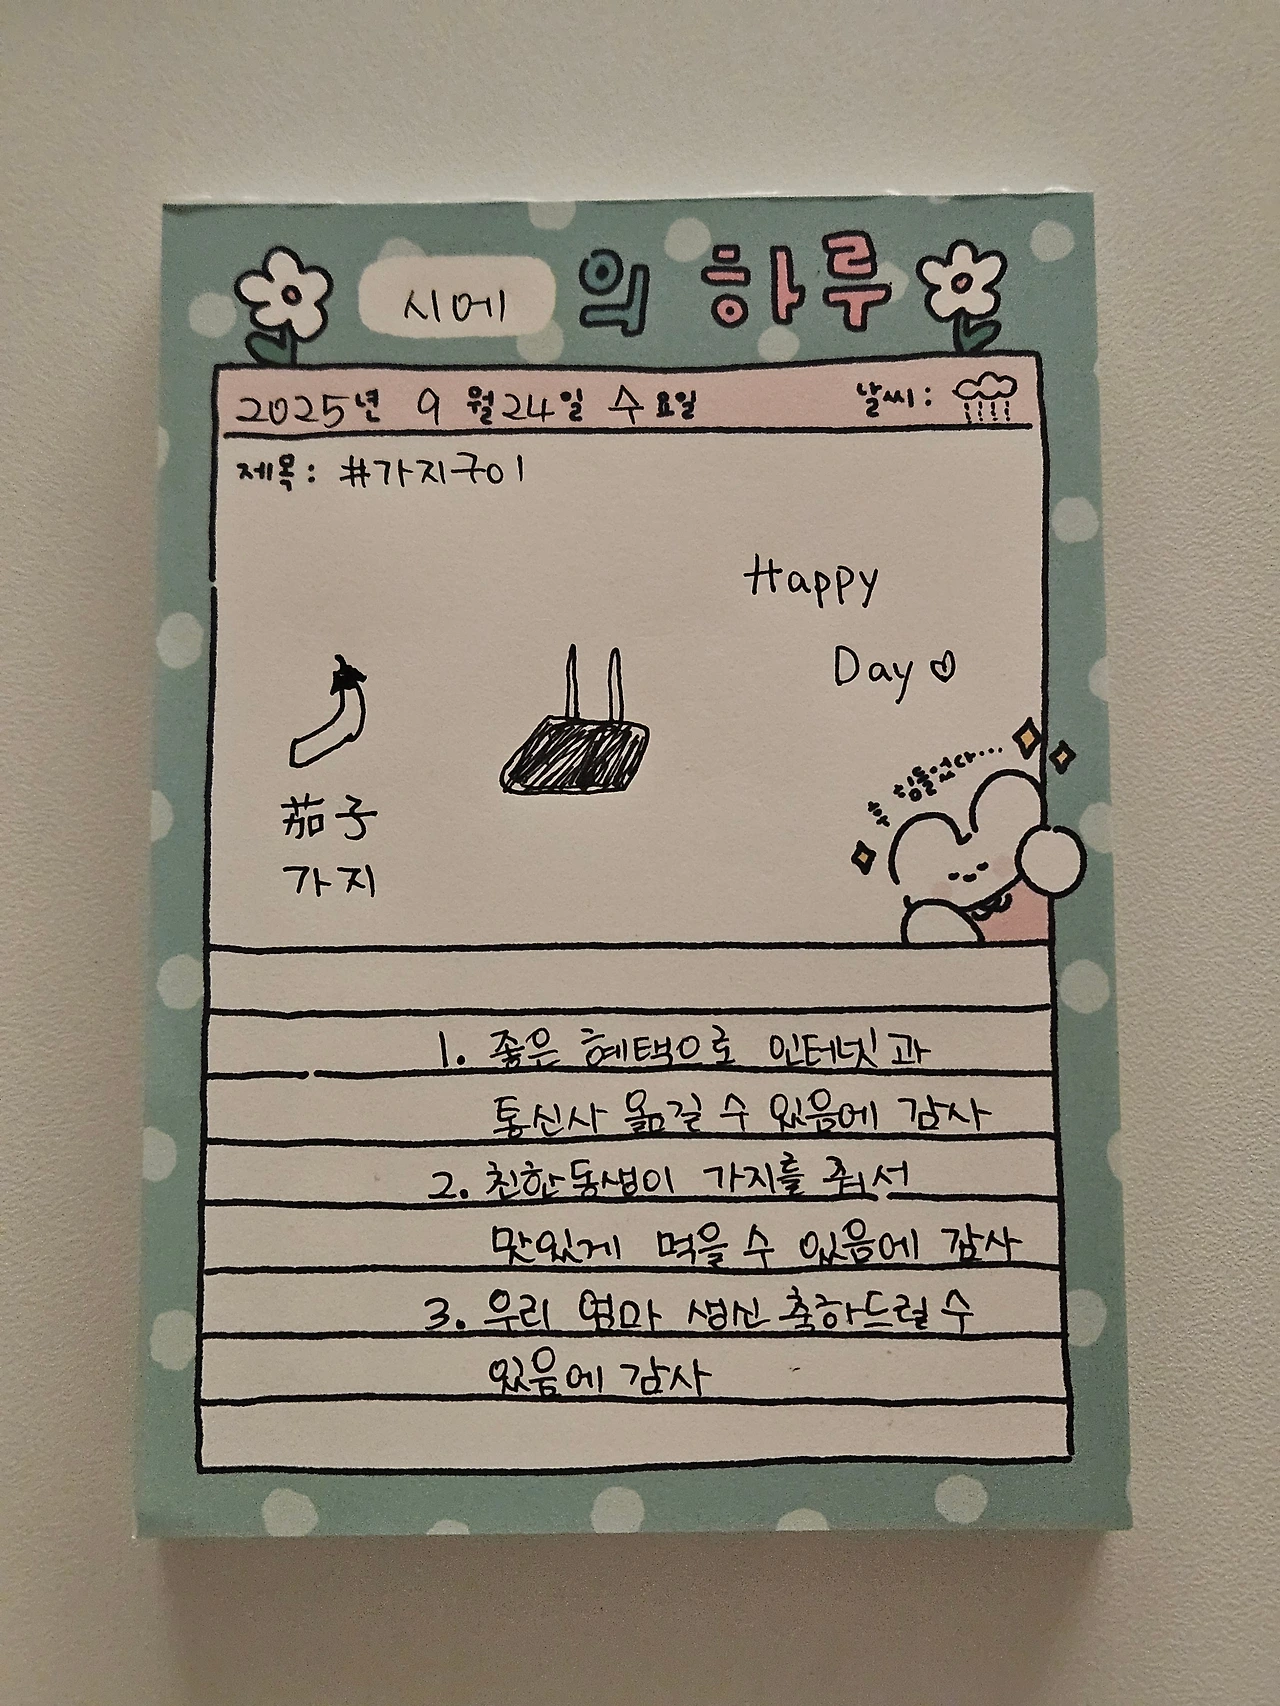 시에 의 하루
2025년 9월 24일 수요일 날씨:
제목: #가지구이
Happy
Day
후 힘들었다...
茄子
가지
1. 좋은 혜택으로 인터넷과
통신사 옮길 수 있음에 감사
2. 친한동생이 가지를 줘서
맛있게 먹을 수 있음에 감사
3. 우리 엄마 생신 축하드릴 수
있음에 감사